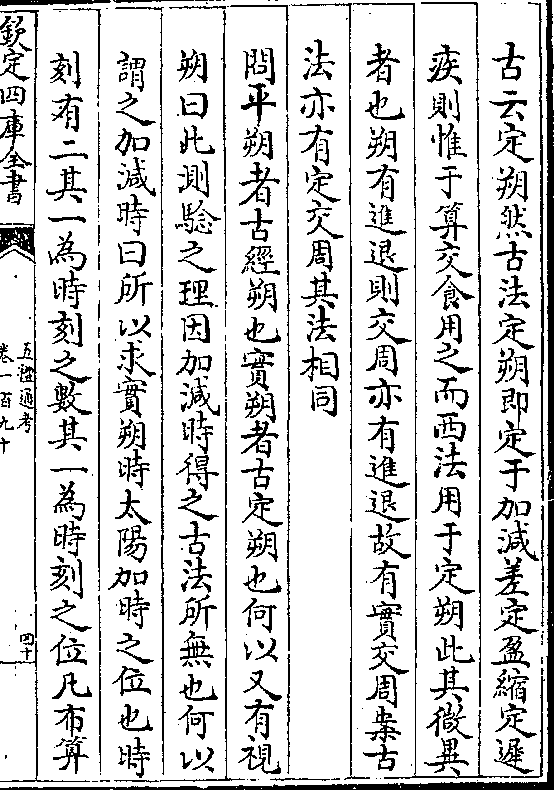 古云定朔然古法定朔即定于加減差定盈縮定遲
疾則惟于算交食用之而西法用于定朔此其微異
者也朔有進退則交周亦有進退故有實交周㭍古
法亦有定交周其法相同
問平朔者古經朔也實朔者古定朔也何以又有視
朔曰此測驗之理因加減時得之古法所無也何以
謂之加減時曰所以求實朔時太陽加時之位也時
刻有二其一為時刻之數其一為時刻之位凡布算
欽定四庫全書
五禮通考
卷一百九十
四十